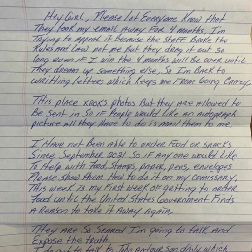 Hey Girl, Please let Everyone know that
They took my email away for 4 months. I'm
Trying to appeal it because the staff broke the
Rules and Laws not me but they drag it out so
long even if I win the 4 months will be over until
they dream up something else, so I'm back to
writting letters, which keeps me from going crazy.
This place photos But they are allowed to
be sent in so if people would like an autograph
picture all they have to do is mail them to me.
I Have not been able to order food or snacks
Since September 2021 so if anyone would like
To Help with food, stamps, paper, pens, envelopes
Please show them How to do it on my commissary.
This week is my first week of getting to order
food until the United States Government Finds
A Reason to take it away again.
They are so scared I'm going to talk and
Expose the truth.
talk to daily which